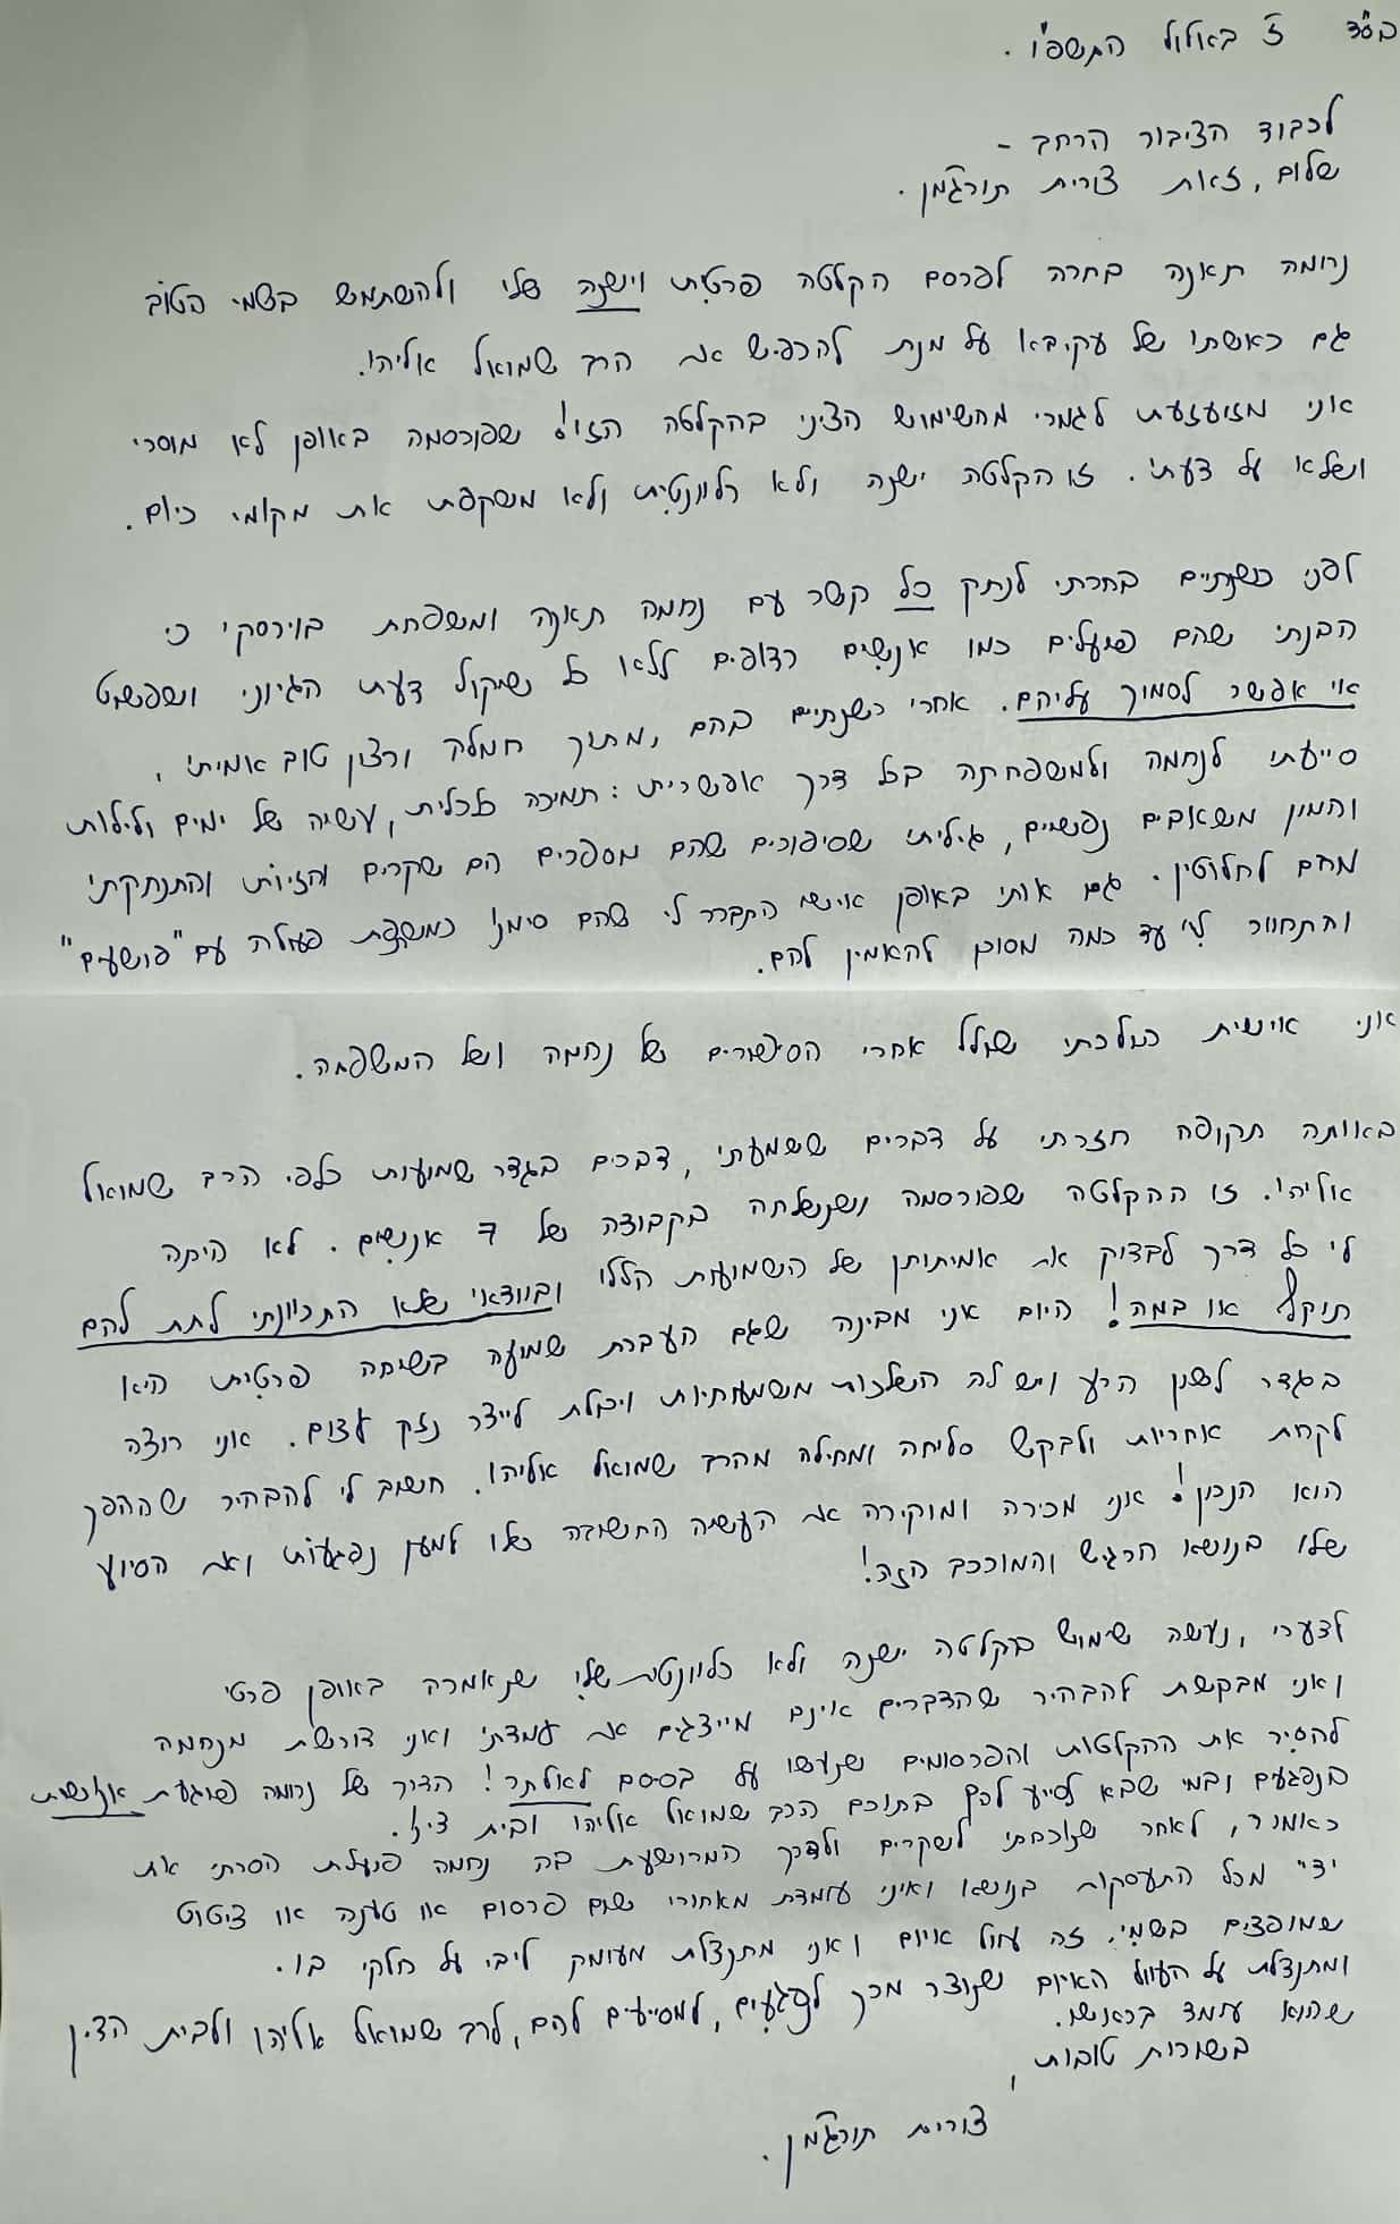 בס"ד ז' באלול התשפ"ו.
לכבוד הציבור הרחב -
שלום, זאת צורית תורג'מן.
נחמה תאנה בחרה לפרסם הקלטה פרטית וישנה שלי ולהשתמש בשמי הטוב
גם כאשתו של עקיבא על מנת להכפיש את הרב שמואל אליהו.
אני מזועזעת לגמרי מהשימוש הציני בהקלטה הזו! שפורסמה באופן לא מוסרי
ושלא על דעתי. זו הקלטה ישנה ולא רלוונטית ולא משקפת את מקומי כיום.
לפני כשנתיים בחרתי לנתק כל קשר עם נחמה תאנה ומשפחת בוירסקי כי
הבנתי שהם פועלים כמו אנשים רדופים ללא כל שיקול דעת הגיוני ושפשוט
אי אפשר לסמוך עליהם. אחרי כשנתיים בהם, מתוך חמלה ורצון טוב אמיתי,
סייעתי לנחמה ולמשפחתה בכל דרך אפשרית: תמיכה כלכלית, עשיה של ימים ולילות
והמון משאבים נפשיים, גיליתי שסיפורים שהם מספרים הם שקרים והזיות והתנתקתי
מהם לחלוטין. גם אותי באופן אישי התברר לי שהם סימנו כמשתפת פעולה עם "פושעים"
והתחוור לי עד כמה מסוכן להאמין להם.
אני אישית הולכתי שולל אחרי הסיפורים של נחמה ושל המשפחה.
באותה תקופה חזרתי על דברים ששמעתי, דברים בגדר שמועות כלפי הרב שמואל
אליהו. זו ההקלטה שפורסמה ושנשלחה בקבוצה של 7 אנשים. לא היתה
לי כל דרך לבדוק את אמיתותן של השמועות הללו ובוודאי שלא התכוונתי לתת להם
תוקף או במה! היום אני מבינה שגם העברת שמועה בשיחה פרטית היא
בגדר לשון הרע ויש לה השלכות משמעותיות ויכולת לייצר נזק עצום. אני רוצה
לקחת אחריות ולבקש סליחה ומחילה מהרב שמואל אליהו. חשוב לי להבהיר שההפך
הוא הנכון! אני מכירה ומוקירה את העשיה החשובה שלו למען נפגעות ואת הסיוע
שלו בנושא הרגיש והמורכב הזה!
לצערי, נעשה שימוש בקלטה ישנה ולא רלוונטית שלי שנאמרה באופן פרטי
ואני מבקשת להבהיר שהדברים אינם מייצגים את עמדתי ואני דורשת מנחמה
להסיר את ההקלטות והפרסומים שנעשו על בסיסם לאלתר! הדרך של נחמה פוגעת אנושות
בנפגעים ובמי שבא לסייע להם בתוכם הרב שמואל אליהו ובית דינו.
כאמור, לאחר שנוכחתי לשקרים ולדרך המרושעת בה נחמה פועלת הסרתי את
ידי מכל התעסקות בנושא ואיני עומדת מאחורי שום פרסום או טענה או ציטוט
שמופצים בשמי. זה עוול איום ואני מתנצלת מעומק ליבי על חלקי בו.
ומתנצלת על העוול האיום שנוצר מכך לנפגעים, למסייעים להם, לרב שמואל אליהו ולבית הדין
שהוא עומד בראשו.
בשורות טובות,
צורית תורג'מן.